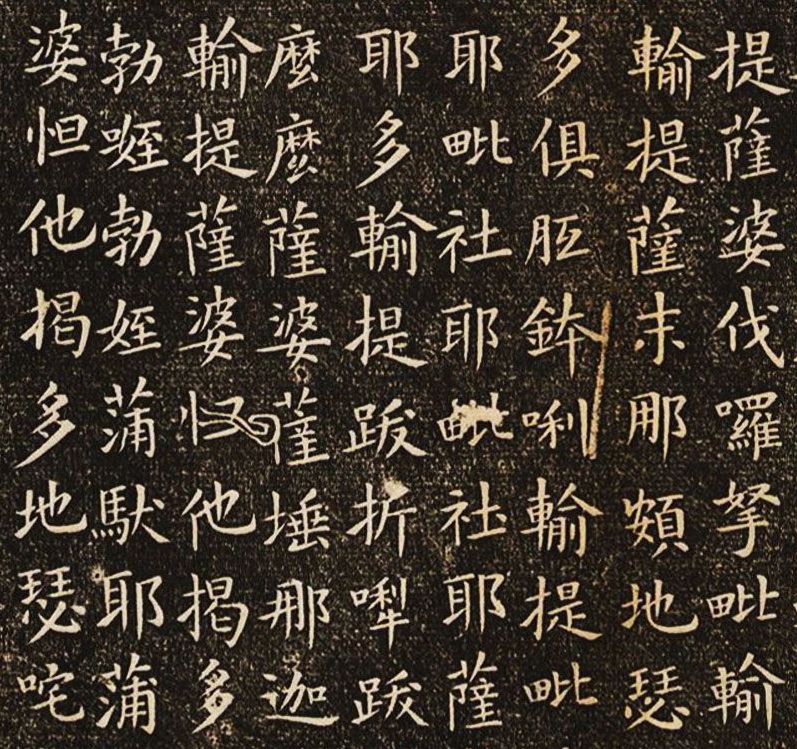 提薩婆伐囉拏毗輸
輸提薩末那頞地瑟
多俱胝鉢唎輸提毗
耶毗社耶毗社耶薩
耶多輸提跋折𠼝跋
麼麼薩婆薩埵那迦
輸提薩婆怛他揭多
勃勃姪蒲馱耶蒲
婆怛他揭多地瑟咤